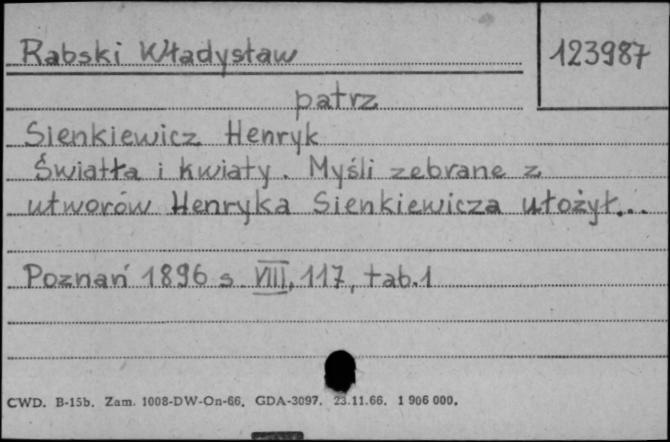 Rabski Władysław
123987
patrz
Sienkiewicz Henryk
Światła i kwiaty. Myśli zebrane z
utworów Henryka Sienkiewicza ułożył...
Poznań 1896 s VIII, 117, tab.1
CWD. B-15b. Zam. 1008-DW-On-66. GDA-3097. 23.11.66. 1 906 000.